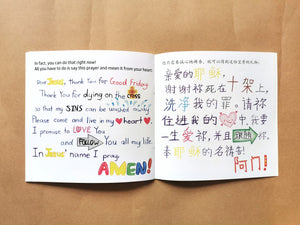 In fact, you can do that right now!
All you have to do is say this prayer and mean it from your heart:
Dear Jesus, thank You for Good Friday
Thank You for dying on the cross
so that my SINS can be washed away.
Please come and live in my heart.
I promise to LOVE You
and FOLLOW You all my life.
In Jesus' name I pray,
AMEN!
亲爱的耶稣,
谢谢祢死在十字架上,
洗净我的罪。请祢
住进我的 中,我要
一生爱祢,并且跟随祢.
奉耶稣的名祷告!
阿门!